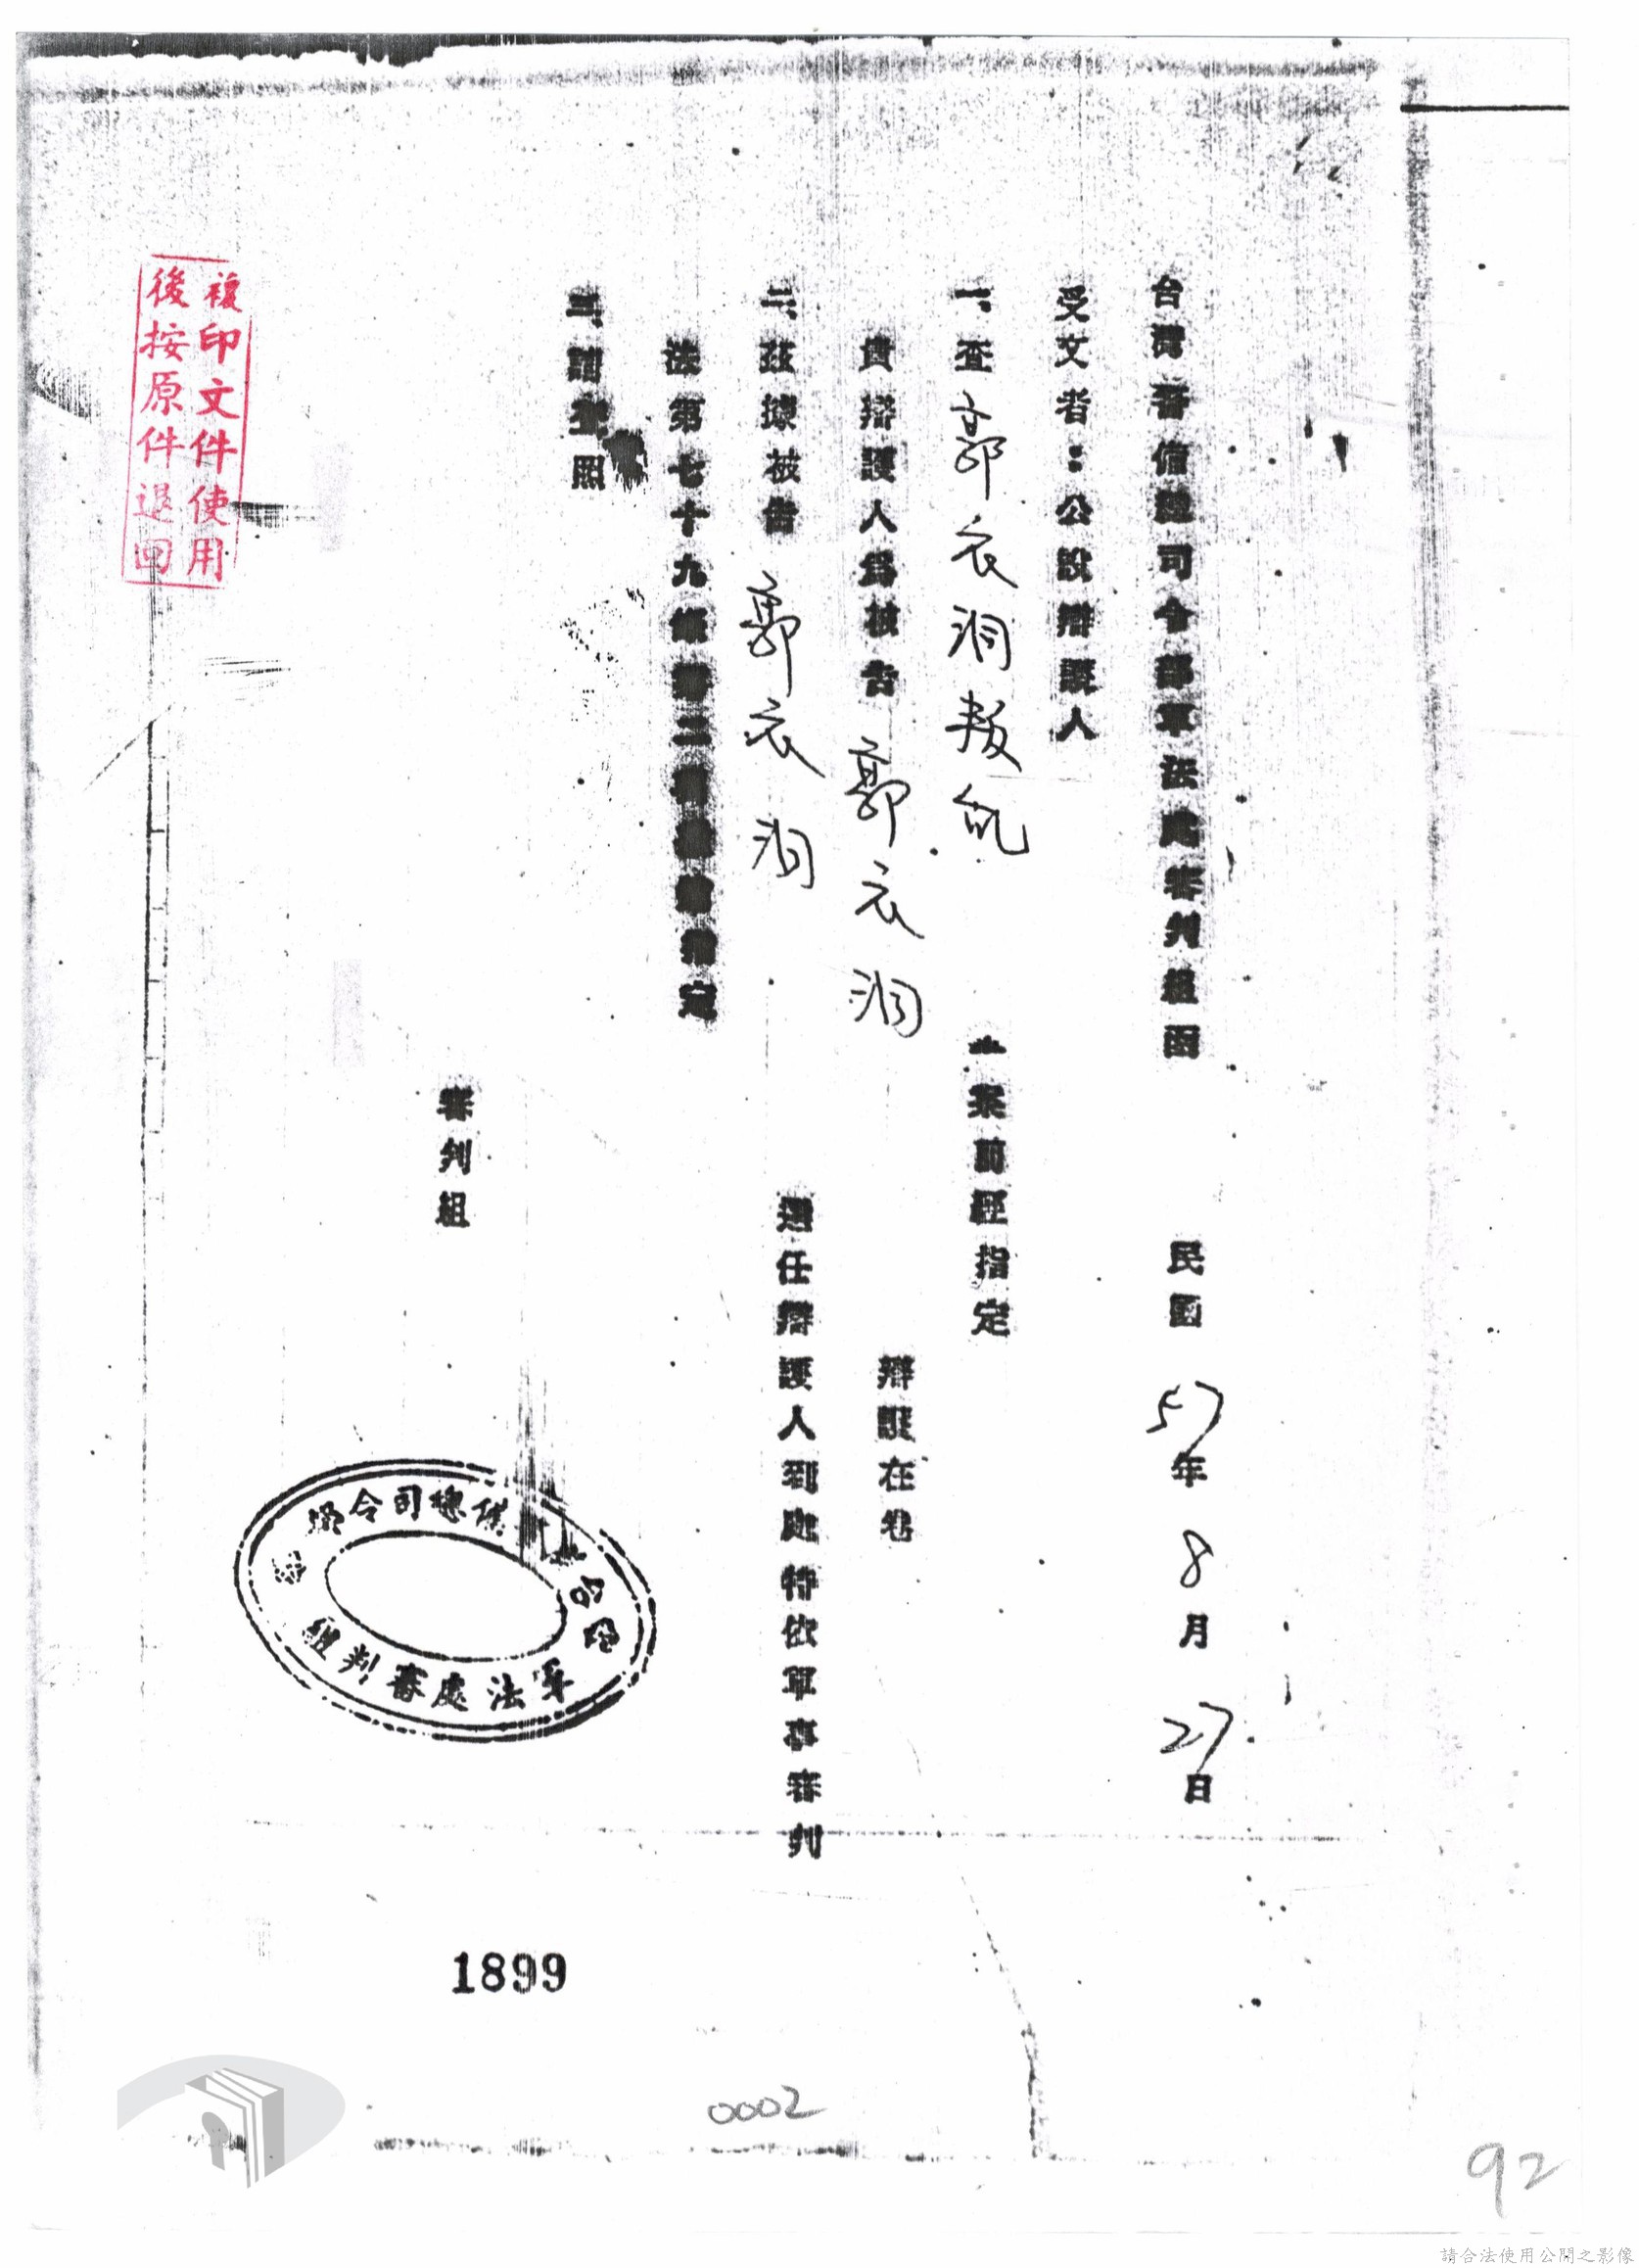 台灣警備總司令部軍法處審判組函　民國57年8月27日
受文者：公設辯護人
一、查郭衣洞叛亂　一案前經指定
貴辯護人為被告郭衣洞　辯護在卷
二、茲據被告郭衣洞　選任辯護人到處特依軍事審判
法第七十九條第二項
指定
三、請查照
審判組
總司令部
軍法處審判組
複印文件使用
後按原件退回
1899
0002
92
請合法使用公開之影像